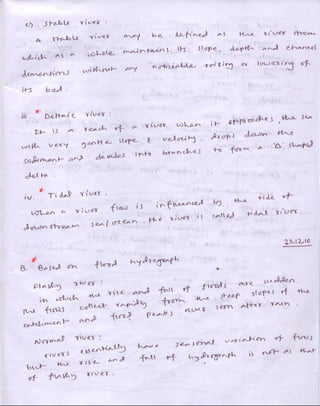 c) Stable river :
A stable river may be defined as the river stream
which as a whole maintains its slope, depth and channel
dimentions without any noticiable raising or lowering of
its bed.
iii. * Deltaic river :
It is a reach of a river when it approaches, the sea
with very gentle slope & velocity. drops down the
sediment and devides into branches to form a 'Δ' shaped
delta.
iv. * Tidal river :
When a river flow is influenced by, the tide of
downstream sea/ocean, the river is called tidal river.
23.12.10
B. * Based on flood hydrograph
Flashy river :
in which the rise and fall of floods are sudden.
The floods collect rapidly from the steep slopes of the
catchment and flood peaks occur soon after rain.
Normal river :
rivers essentially have seasonal variation of flows
but the rise and fall of hydrograph is not as that
of flashy river.